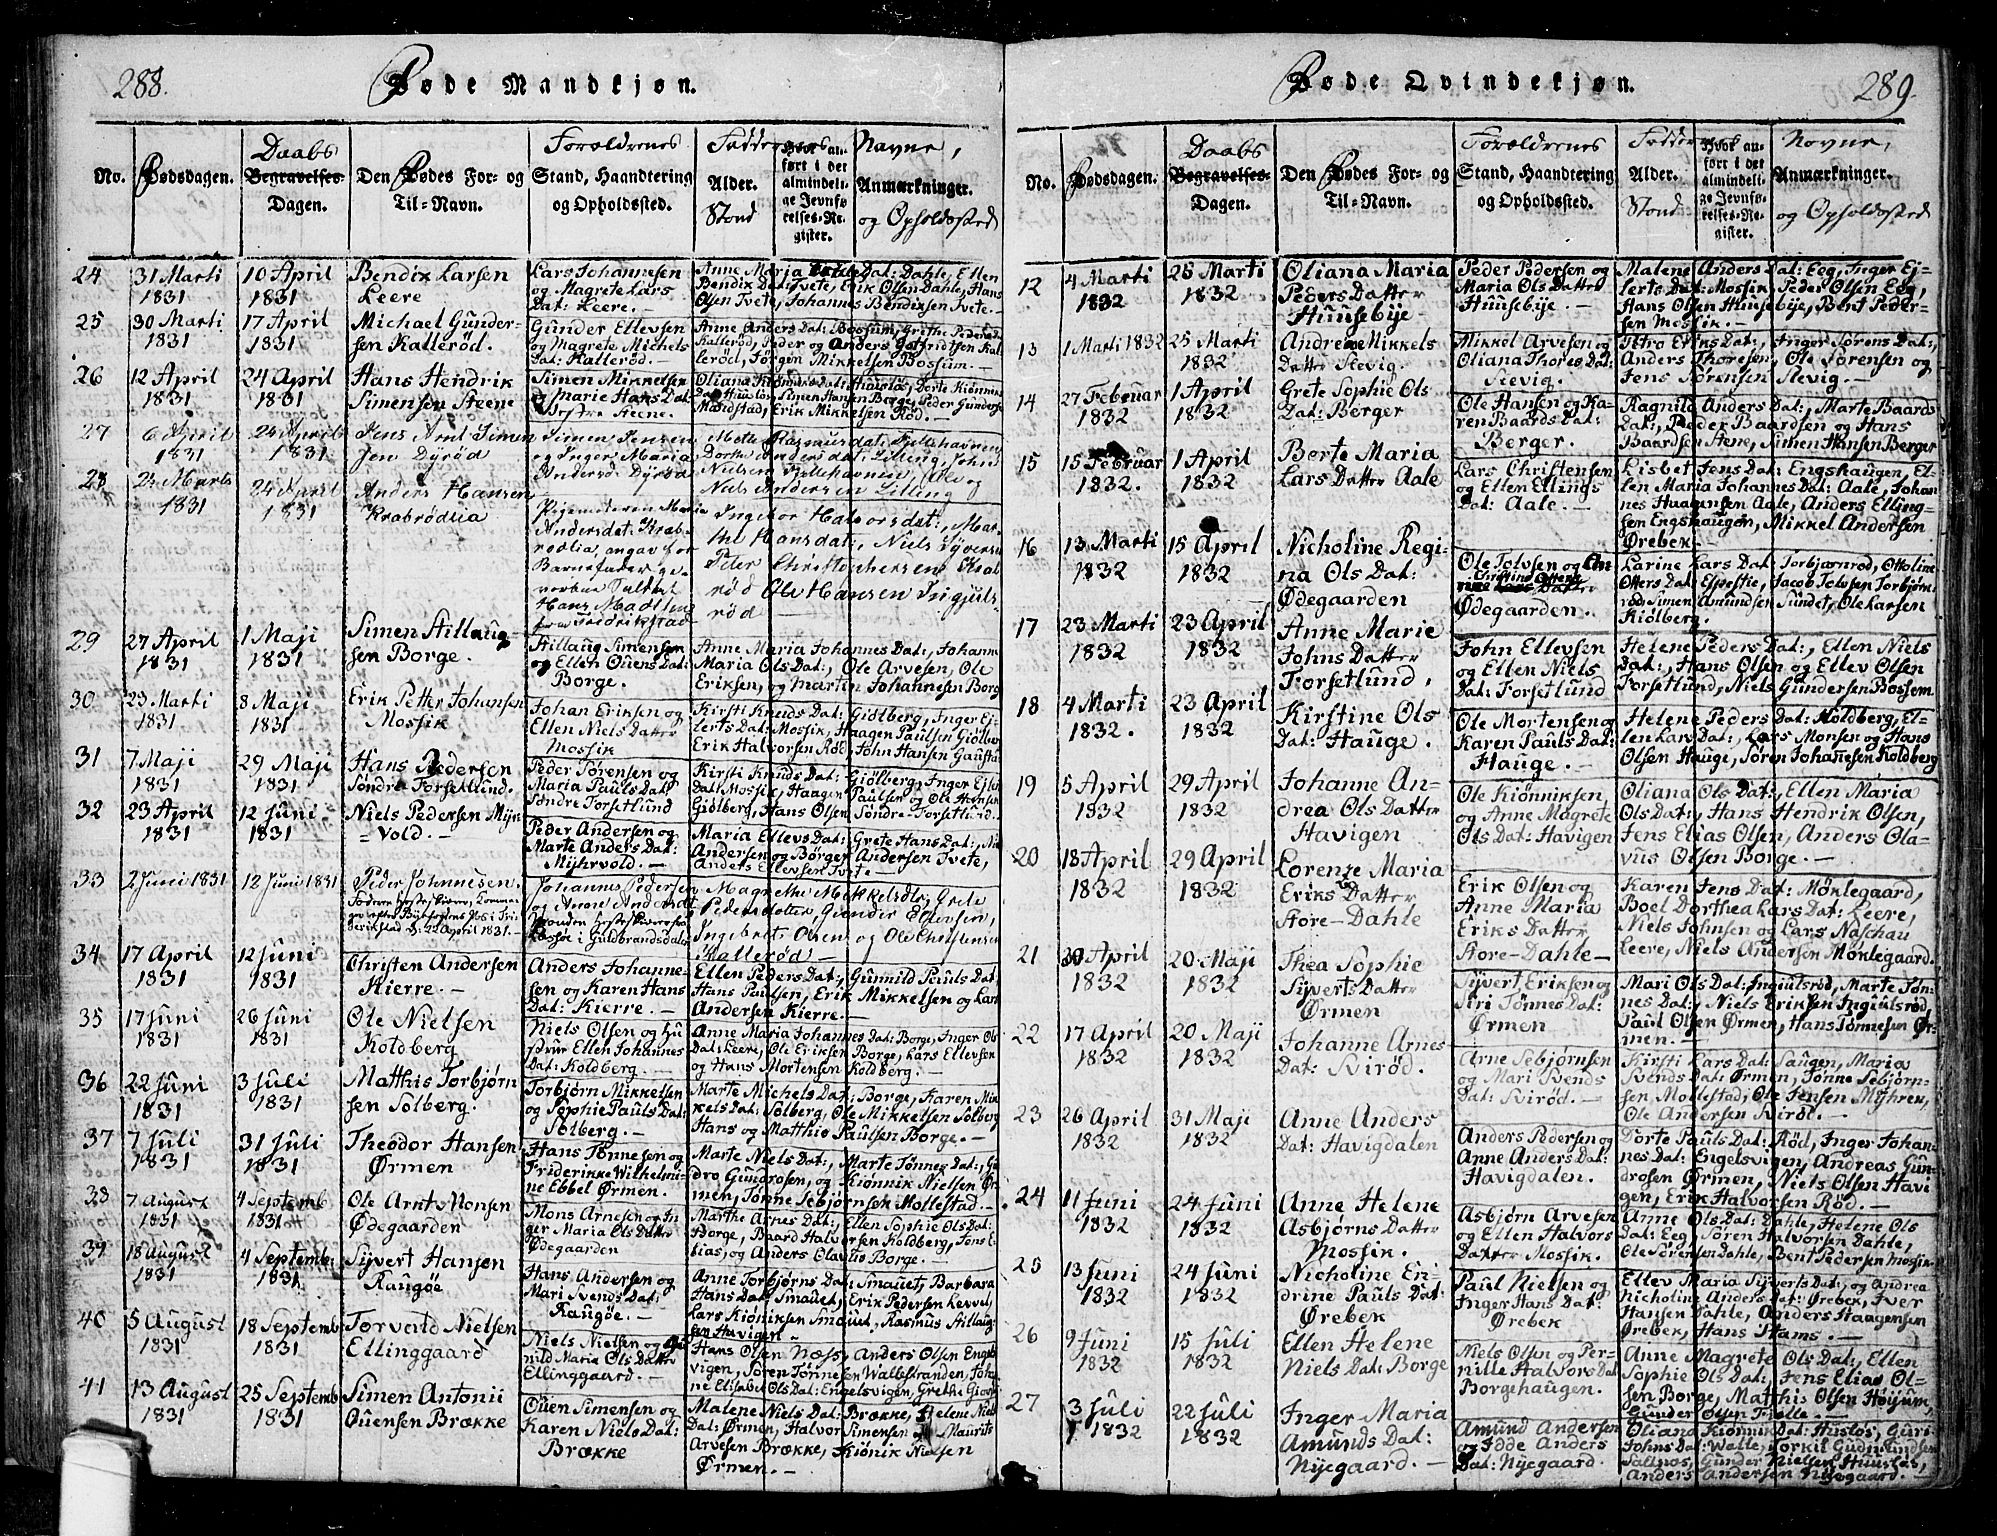 288.
Føde Mandkjøn.
No.
Fødsdagen.
Daabs
Begravelses-
Dagen.
Den Fødes For- og
Til-Navn.
Forældrenes
Stand, Haandtering
og Opholdssted.
Faddernes
Alder.
Stand
Hvor an-
ført i det
almindeli-
ge Jevnfø-
relses-Re-
gister.
Navne,
Anmærkninger.
og Opholdssted
24
31 Marti
1831
10 April
1831
Bendix Larsen
Leere
Lars Johannesen
og Magrete Lars
Dat: Leere.
Bendix Dat: Tvete, Erik Olsen Dahle, Hans
Olsen Tvete, Johannes Bendixsen Tvete.
25
30 Marti
1831
17 April
1831
Michael Gunder-
sen Kallerød.
Gunder Ellevsen
og Magrete Michels
Dat: Kallerød.
Kallerød, Peder og Anders Gotfridtsen Kal-
lerød, Jørgen Mikkelsen Bossum.
26
12 April
1831
24 April
1831
Hans Hendrik
Simensen Steene
Simen Mikkelsen
og Marie Hans Dat:
27
6 April
1831
24 April
1831
Jens Arnt Simen
sen Dyrød
Simen Jensen
og Inger Maria
Andersd: Dyrød
28
23 Marts
1831
24 April
1831
Anders Hansen
Krabrødlia
Pigemoderen Maria
Andersdat: Krab-
rødlia, angav for
Barnefader
29
27 April
1831
1 Maji
1831
Simen Hillaug-
sen Borge.
Hillaug Simensen
og Ellen Ouens Dat:
Borge.
Anne Maria Johannes Dat:, Johanne
Maria Ols Dat:, Ole Arvesen, Ole
Eriksen, og Martin Johannesen Borge
30
23 Marti
1831
8 Maji
1831
Erik Petter Johansen
Mossik
Johan Eriksen og
Ellen Niels Datter
Mossik
Kirsti Knuds Dat: Giölberg, Inger Ej-
lerts Dat: Mossik, Haagen Paulsen Giölberg
Erik Halvorsen Rød John Hansen
31
7 Maji
1831
29 Maji
1831
Hans Pedersen
Søndre Forsetlund.
Peder Sørensen og
Maria Pauls Dat:
Søndre Forsetlund
Kirsti Knuds Dat: Giölberg, Inger Ejlerts
Dat: Mossik, Haagen Paulsen og Ole Hansen
Giölberg, Hans Olsen Søndre Forsetlund.
32
23 April
1831
12 Juni
1831
Niels Pedersen Myhr-
vold.
Peder Andersen og
Marte Anders Dat:
Myhrvold.
Maria Ellevs Dat: Grete Hans Dat:, Niels
Andersen og Børger Andersen Tvete,
Anders Ellevsen Tvete
33
2 Juni 1831
12 Juni 1831
Peder Johannesen.
Johannes Pedersen
og Anne Andersdt:
Magrethe Mikkelsdtr, Grete
Pedersdatter Gunder Ellevsen,
Ingebret Olsen og Ole Christensen
Kallerød
34
17 April
1831
12 Juni
1831
Christen Andersen
Kierre.
Anders Johanne-
sen og Karen Hans
Dat: Kierre.
Ellen Peders Dat:, Gunnild Pouls Dat:
Hans Paulsen, Erik Mikkelsen og Lars
Andersen Kierre.
35
17 Juni
1831
26 Juni
1831
Ole Nielsen
Koldberg
Niels Olsen og Hu
strue Ellen Johannes
Dat: Koldberg.
Anne Maria Johannes Dat: Borge, Inger Ols
Dat: Leere, Ole Eriksen Borge, Lars Ellevsen
og Hans Mortensen Koldberg.
36
22 Juni
1831
3 Juli
1831
Matthis Torbjørn
sen Solberg.
Torbjørn Mikkelsen
og Sophie Pauls Dat:
Solberg.
Marte Michels Dat: Borge, Karen Mik
kels Dat: Solberg, Ole Mikkelsen Solberg
Hans og Matthis Paulsen Borge.
37
7 Juli
1831
31 Juli
1831
Theodor Hansen
Ørmen
Hans Tønnesen og
Friderikke Wilhelmi-
ne Ebbel Ørmen.
Marte Niels Dat:, Marte Tønnes Dat:, Gun
dro Gundrosen, og Kiönnik Nielsen Ør-
men, Tønne Sebjørnsen Mollestad.
38
7 August
1831
4 Septemb
1831
Ole Arnt Monsen
Ødegaarden
Mons Arnesen og In
ger Maria Ols Datter
Ødegaarden
Marthe Arnes Dat:, Ellen Sophie Ols Dat:
Borge, Baard Halvorsen Koldberg, Jens E-
lias, og Anders Olavus Borge.
39
18 August
1831
4 Septemb:
1831
Syvert Hansen
Raugøe
Hans Andersen og
Mari Svends Dat:
Raugøe.
Anne Torbjørns Dat: Smauet, Barbara
Hans Dat: Smauet, Erik Pedersen Levvel,
Lars Kiöniksen Smauet, Rasmus Hillaug
sen Havigen
40
5 August
1831
18 Septemb
1831
Torvald Nielsen
Ellinggaard
Niels Nielsen og Gu
nild Maria Ols Datter
Ellinggaard.
Hans Olsen Næss, Anders Olsen Engel
vigen, Søren Tønnesen Wallestranden, Johan
ne Elisabet Ols Dat: Engelsvigen, Grethe
41
13 August
1831
25 Septemb
1831
Simen Antoni
Ouensen Brække
Ouen Simensen og
Karen Niels Dat:
Brække
Malene Niels Dat: Brække, Helene Niels
Dat: Ørmen, Halvor Simensen Maurits
Arvesen Brække, Kiönik Nielsen
Ørmen.
Føde Qvindekjøn.
289.
No.
Fødsdagen.
Daabs
Begravelses-
Dagen.
Den Fødes For- og
Til-Navn.
Forældrenes
Stand, Haandtering
og Opholdssted.
Alder.
Stand
Hvor an-
ført i det
almindeli-
ge Jevnfø-
relses-Re-
gister.
Navne,
Anmærkninger.
og Opholdssted
12
4 Marti
1832
25 Marti
1832
Oliana Maria
Peders Datter
Huusebye
Peder Pedersen og
Maria Ols Datter
Huusebye.
Malene Anders Dat: Eeg, Inger Ej-
lerts Dat: Mossik, Peder Olsen Eeg,
Hans Olsen Huusebye, Bent Peder-
sen Mossik.
13
1 Marti 1832
25 Marti
1832
Andrea Mikkels
Datter Slevig.
Mikkel Arvesen og
Oliana Thores Dat:
Slevig.
Petro Eriks Dat:, Inger Sørens Dat:,
Anders Thoresen, Ole Sørensen og
Jens Sørensen Slevig.
14
27 Februar
1832
1 April
1832
Grete Sophie Ols
Dat: Berger
Ole Hansen og Ka-
ren Baards Dat:
Berger.
Ragnild Anders Dat:, Marte Baards
Dat:, Peder Baardsen og Hans
Baardsen Stene, Simen Hansen Berger
15
15 Februar
1832.
1 April
1832
Berte Maria
Lars Datter Aale
Lars Christensen
og Ellen Ellings
Dat: Aale.
Lisbet Jens Dat: Engshaugen, El-
len Maria Johannes Dat: Aale, Johan
nes Haagensen Aale, Anders Elling-
sen Engshaugen, Mikkel Andersen
Ørebek
16
13 Marti
1832
15 April
1832
Nicholine Regi-
na Ols Dat:
Ødegaarden
Ole Tolvsen og
Ødegaarden.
Karine Lars Dat: Torbjørnrød, Otteline
Otters Dat: Jacob Tolvsen Torbjörn
rød, Simen Amundsen Sundet, Ole Larsen
Kiölberg.
17
23 Marti
1832
23 April
1832
Anne Marie
Johns Datter
Forsetlund,
John Ellevsen
og Ellen Niels
Dat: Forsetlund
Helene Peders Dat:, Ellen Niels
Dat:, Hans Olsen og Ellev Olsen
Forsetlund, Niels Gundersen Bossum
18
4 Marti
1832.
23 April
1832
Kirstine Ols
Dat: Hauge.
Ole Mortensen og
Karen Pauls Dat:
Hauge.
Helene Peders Dat: Koldberg, El-
len Lars Dat:, Lars Monsen og Hans
Olsen Hauge, Søren Johannesen Koldberg
19
5 April
1832
29 April
1832
Johanne An-
drea Ols Datter
Havigen
Ole Kiönniksen,
og Anne Magrete
Ols Dat: Havigen
Oliana Ols Dat:, Ellen Maria
Ols Dat:, Hans Hendrik Olsen,
Jens Elias Olsen, Anders Ola-
vus Olsen Borge.
20
18 April
1832
29 April
1832
Lorenze Maria
Eriks Datter
Store-Dahle
Erik Olsen og
Anne Maria
Eriks Datter
Store-Dahle
Karen Jens Dat: Møklegaard,
Boel Dorthea Lars Dat: Leere,
Niels Johnsen og Lars Naschau
Leere, Niels Andersen Møklegaard.
21
April
1832
20 Maji
1832
Thea Sophie
Syverts Datter
Ørmen
Syvert Eriksen og
Siri Tønnes Dat:
Ørmen
Mari Ols Dat: Ingiulsrød, Marte Tøn-
nes Dat:, Niels Eriksen Ingiulsrød,
Paul Olsen Ørmen, Hans Tønnesen Ør-
men.
22
17 April
1832
20 Maji
1832
Johanne Arnes
Dat: Svirød.
Arne Sebjörnsen
og Mari Svends
Dat: Svirød.
Kirsti Lars Dat: Haugen, Maria
Svends Dat: Ørmen, Tønne Sebjørn-
sen Mollestad, Ole Jensen Myhren,
Ole Andersen Svirød.
23
26 April
1832
31 Maji
1832
Anne Anders
Dat: Havigdalen
Anders Pedersen og
Anne Anders Dat:
Havigdalen.
Dorte Pauls Dat: Rød, Inger Johan-
nes Dat: Engelsvigen, Andreas Gun-
drosen Ørmen, Niels Olsen Havi
gen, Erik Halvorsen Rød.
24
11 Juni
1832
24 Juni
1832
Anne Helene
Asbjørns Datter
Mossik.
Asbjørn Arvesen
og Ellen Halvors
Datter Mossik.
Anne Ols Dat: Dahle, Helene Ols
Dat: Eeg, Søren Halvorsen Dahle,
Ole Sørensen Dahle, Bent Pedersen Mossik
25
13 Juni
1832
24 Juni
1832
Nicholine En-
drine Pauls Dat
Ørebek
Paul Nielsen og
Inger Hans Dat:
Ørebek
Ellev Maria Syverts Dat:, og Andrea
Nicholine Anders Dat: Ørebek, Iver
Hansen Dahle, Anders Haagensen
Ørebek, Hans Hams.
26
9 Juni
1832
15 Juli
1832
Ellen Helene
Niels Dat: Borge
Niels Olsen og Per-
nille Halvors Dat:
Borgehaugen.
Anne Magrete Ols Dat:, Ellen
Sophie Ols Dat:, Jens Elias Ol-
sen Borge, Matthis Olsen Høyum,
Gunder Olsen Fjelle.
27
3 Juli
1832
22 Juli
1832
Inger Maria
Amunds Dat:
Nyegaard.
Amund Andersen
og Idde Anders
Dat: Nyegaard.
Oliana Kiönnik Dat: Husløs, Guri
Johns Dat: Walle, Torkil Gudmundsen
Saltnæs, Gunder Nielsen Huusløs,
Anders Andersen Nyegaard.